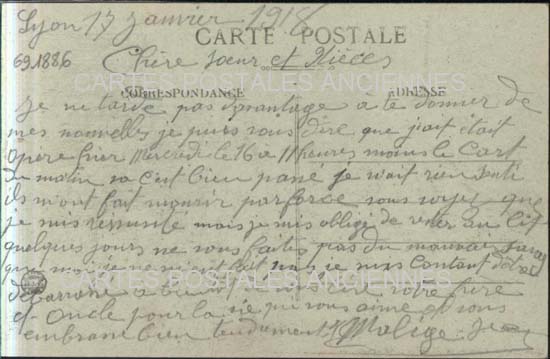 Lyon 17 Janvier 1918
CARTE POSTALE
69.1886
Chère soeur et Nièces
CARTES POSTALES ANCIENNES
CORRESPONDANCE
ADRESSE
Je ne tarde pas davantage a te donner de
mes nouvelles je puis vous dire que j'ait était
opere hier Mercredi le 16 a 11 heures moins le cart
du matin sa c'est bien passé je n'ait rien senti
ils m'ont fait mourir par force vous voyez que
je mis mais je mis obligé de rester au lit
quelques jours ne vous faites pas du mauvais sang
CARTES POSTALES ANCIENNES
je mes contant d'être
debarrassé votre frere
et Oncle pour la vie qui vous aime et vous
embrasse bien tendrement Malige